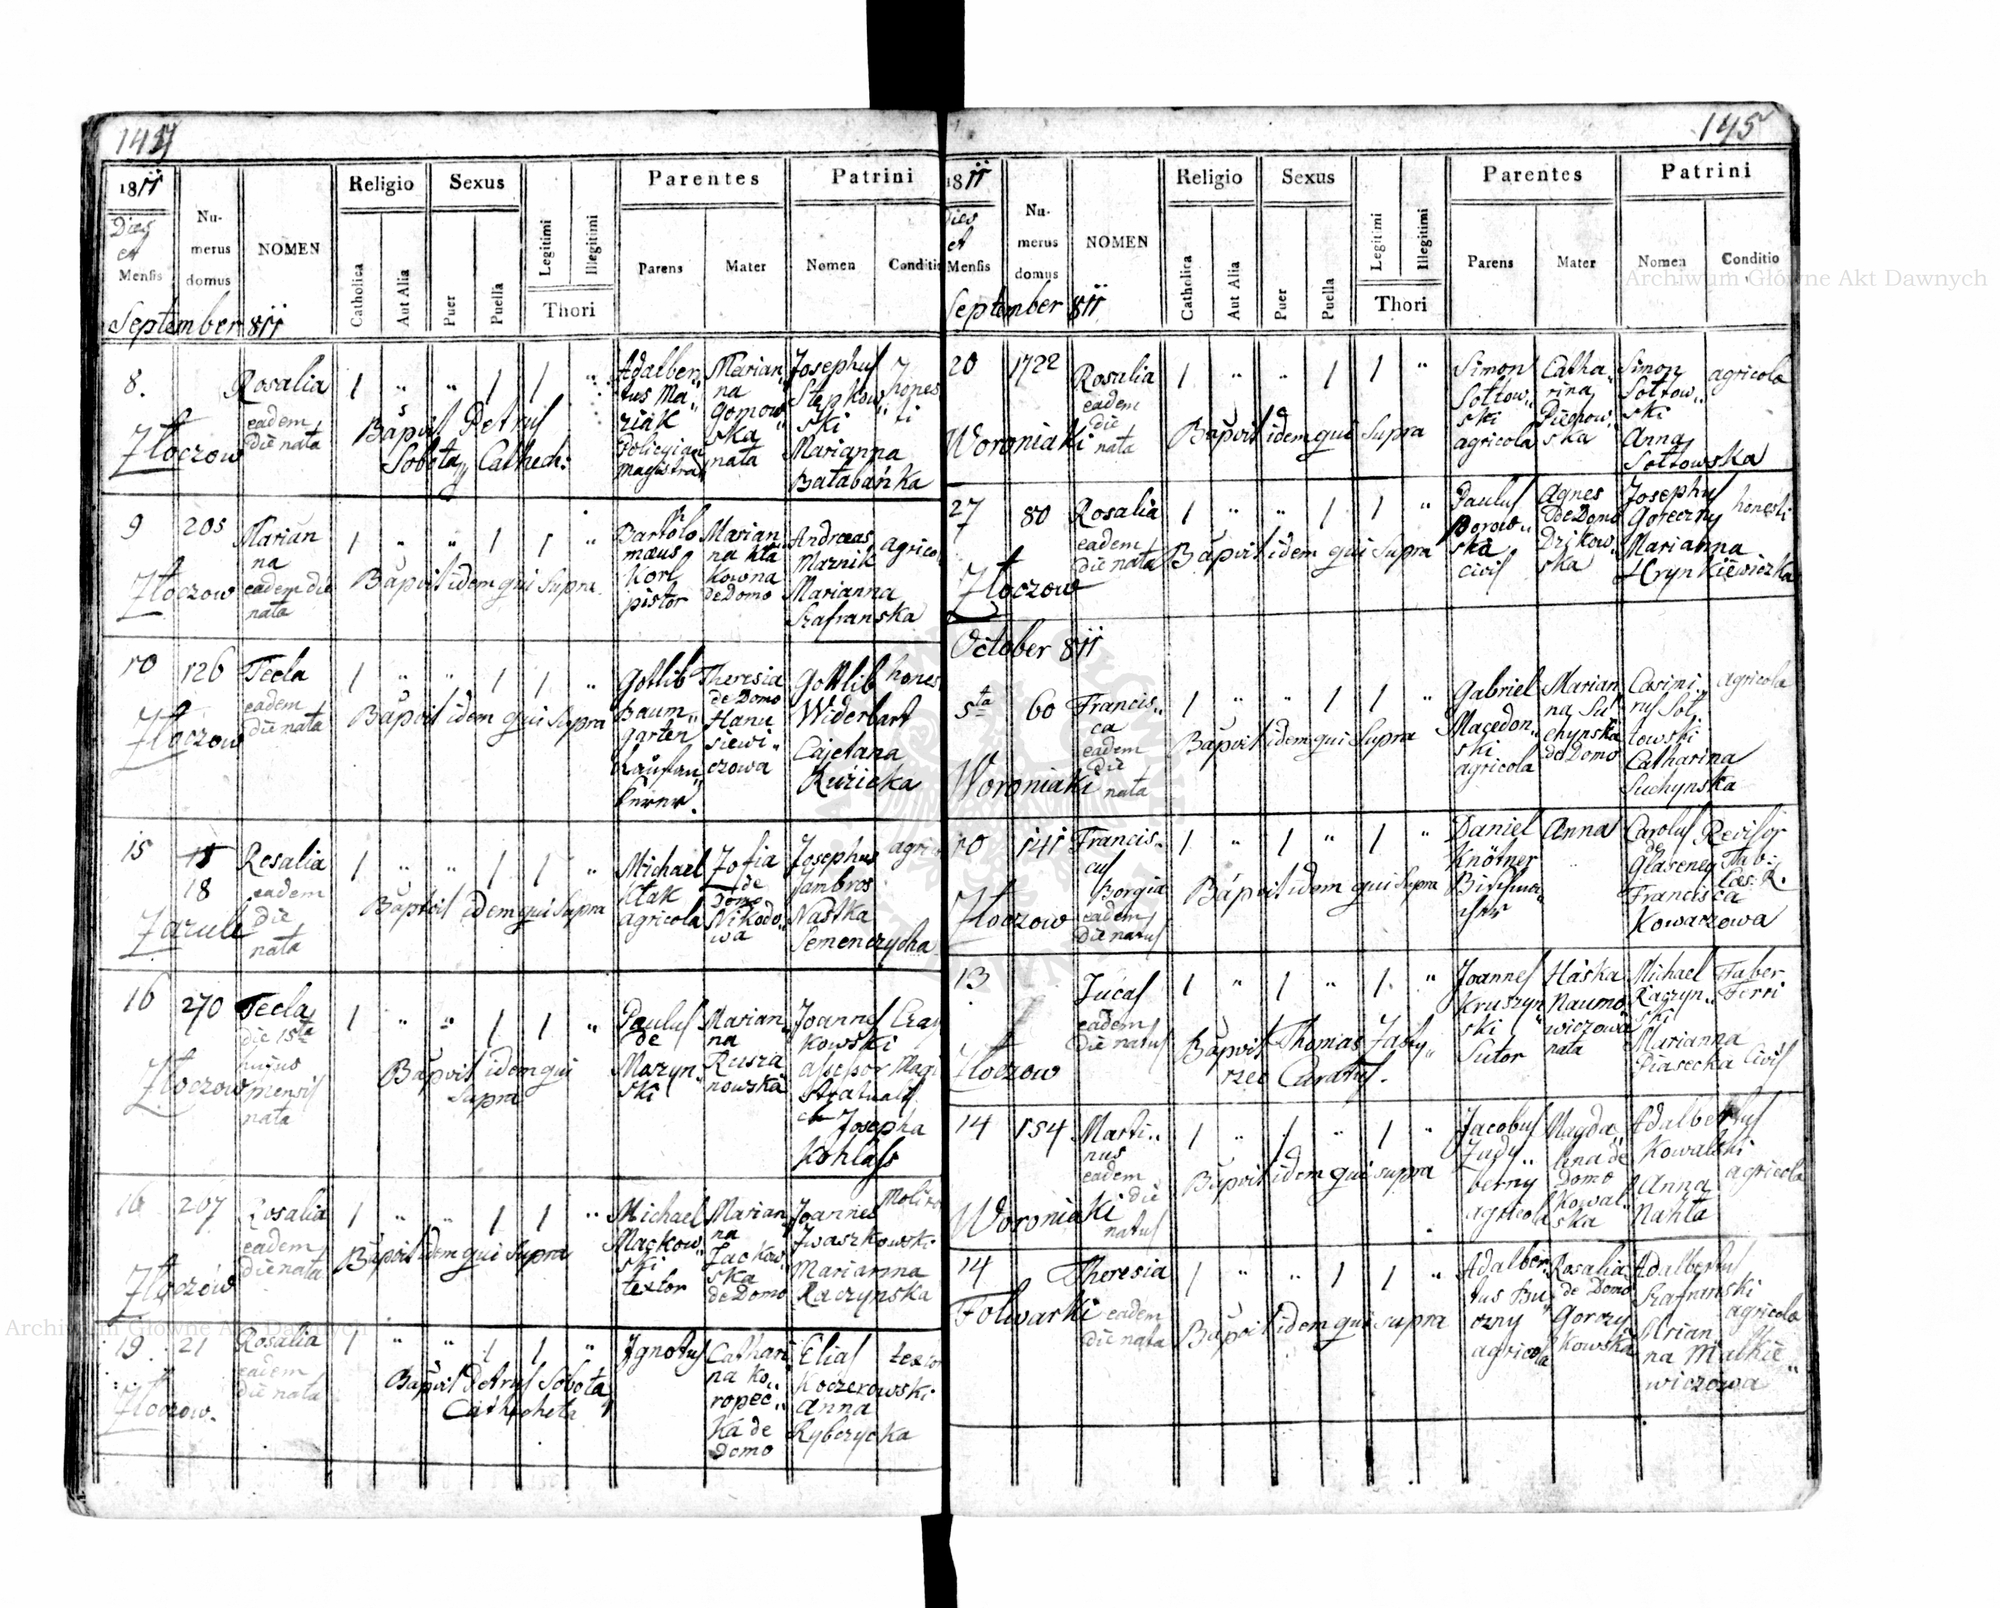 144
1811
Dies
et
Mensis
Nu-
merus
domus
NOMEN
Religio
Catholica
Aut Alia
Sexus
Puer
Puella
Legitimi
Illegitimi
Thori
Parentes
Parens
Mater
Patrini
Nomen
Conditio
September 811
8.
Złoczow
Rosalia
eadem
die nata
1 " " 1 1 "
Petrus
Sobota Cathech:
Adalber
tus Ma
ziak
magistrat
Marian
na
Gomow
ska
nata
Josephus
Stepkow
ski
Marianna
Bałabánka
hones
ti
9
205
Złoczow
Marian
na
eadem die
nata
1 " " 1 1 "
Bapvit idem qui Supra
Bartolo
mæus
Korl
pistor
Marian
na
kowna
de Domo
Andreas
Maznik
Marianna
Szafranska
agrico
10
126
Złoczow
Tecla
eadem
die nata
1 " " 1 1 "
Bapvit idem qui Supra
Gottlib
Baum
garten
Theresia
de Domo
Hanu
siewi
czowa
Gottlib
Widerhart
Cajetana
Ruzicka
hones
15
18
Zazule
Rosalia
eadem
die
nata
1 " " 1 1 "
Bapvit idem qui Supra
Michael
Ktak
agricola
Zofia
de
Domo
Nikodo
wa
Josephus
Jambros
Nastka
Semenczycha
agri
16
270
Złoczow
Tecla
die 15ta
hujus
mensis
nata
1 " " 1 1 "
Bapvit idem qui
Supra
Paulus
de
Mazyn
ski
Marian
na
Rusza
nowska
Joannes
kowski
assessor Magi
Josepha
Kohlass
16
207
Złoczów
Rosalia
eadem
die nata
1 " " 1 1 "
Bapvit idem qui Supra
Michael
Mackow
ski
textor
Marian
na
Jackow
ska
de Domo
Joannes
Jwaszkowski
Marianna
Raczynska
19
21
Złoczow.
Rosalia
eadem
die nata
1 " " 1 1 "
Bapvit Petrus Sobota
Cathecheta
Jgnotus
Cathari
na Ko
ropec
ka de
Domo
Elias
Koczerowski
Anna
Rybczycka
textor
145
1811
Dies
et
Mensis
Nu-
merus
domus
NOMEN
Religio
Catholica
Aut Alia
Sexus
Puer
Puella
Legitimi
Illegitimi
Thori
Parentes
Parens
Mater
Patrini
Nomen
Conditio
September 811
20
1722
Woroniaki
Rosalia
eadem
die
nata
1 " " 1 1 "
Bapvit idem qui Supra
Simon
Sołtow
ski
agricola
Catha
rina
Piechow
ska
Simon
Sołtow
ski
Anna
Sołtowska
agricola
27
80
Złoczow
Rosalia
eadem
die nata
1 " " 1 1 "
Bapvit idem qui Supra
Paulus
Borow
ski
civis
Agnes
de Domo
Dzikow
ska
Josephus
Goreczny
Marianna
Hrynkiewiczka
honesti
October 811
5ta
60
Woroniaki
Francis
ca
eadem
die
nata
1 " " 1 1 "
Bapvit idem qui Supra
Gabriel
Macedon
ski
agricola
Marian
na Su
chynska
de Domo
Casimi
rus Soł
towski
Catharina
Suchynska
agricola
10
141
Złoczow
Francis
cus
Borgia
eadem
die natus
1 " 1 " 1 "
Bapvit idem qui Supra
Daniel
Knötner
Anna
Carolus
de
Francisca
Kowarzowa
Revisor
13
Złoczow
Lucas
eadem
die natus
1 " 1 " 1 "
Bapvit Thomas Zaby
rzec Curatus.
Joannes
Kruszyn
ski
Sutor
Háska
Naumo
wiczowa
nata
Michael
Raczyn
ski
Marianna
Piasecka Civis
Faber
Ferri
14
154
Woroniaki
Marti
nus
eadem
die
natus
1 " 1 " 1 "
Bapvit idem qui supra
Jacobus
berny
agricola
Magda
lena de
Domo
Kowal
ska
Adalbertus
Kowalski
Anna
Nahta
agricola
14
Folwarki
Theresia
eadem
die nata
1 " " 1 1 "
Bapvit idem qui supra
Adalber
tus Bu
czny
agricola
Rosalia
de Domo
Gorczy
kowska
Adalbertus
Szafranski
Marian
na Matkie
wiczowa
agricola
Archiwum Główne Akt Dawnych
Archiwum Główne Akt Dawnych